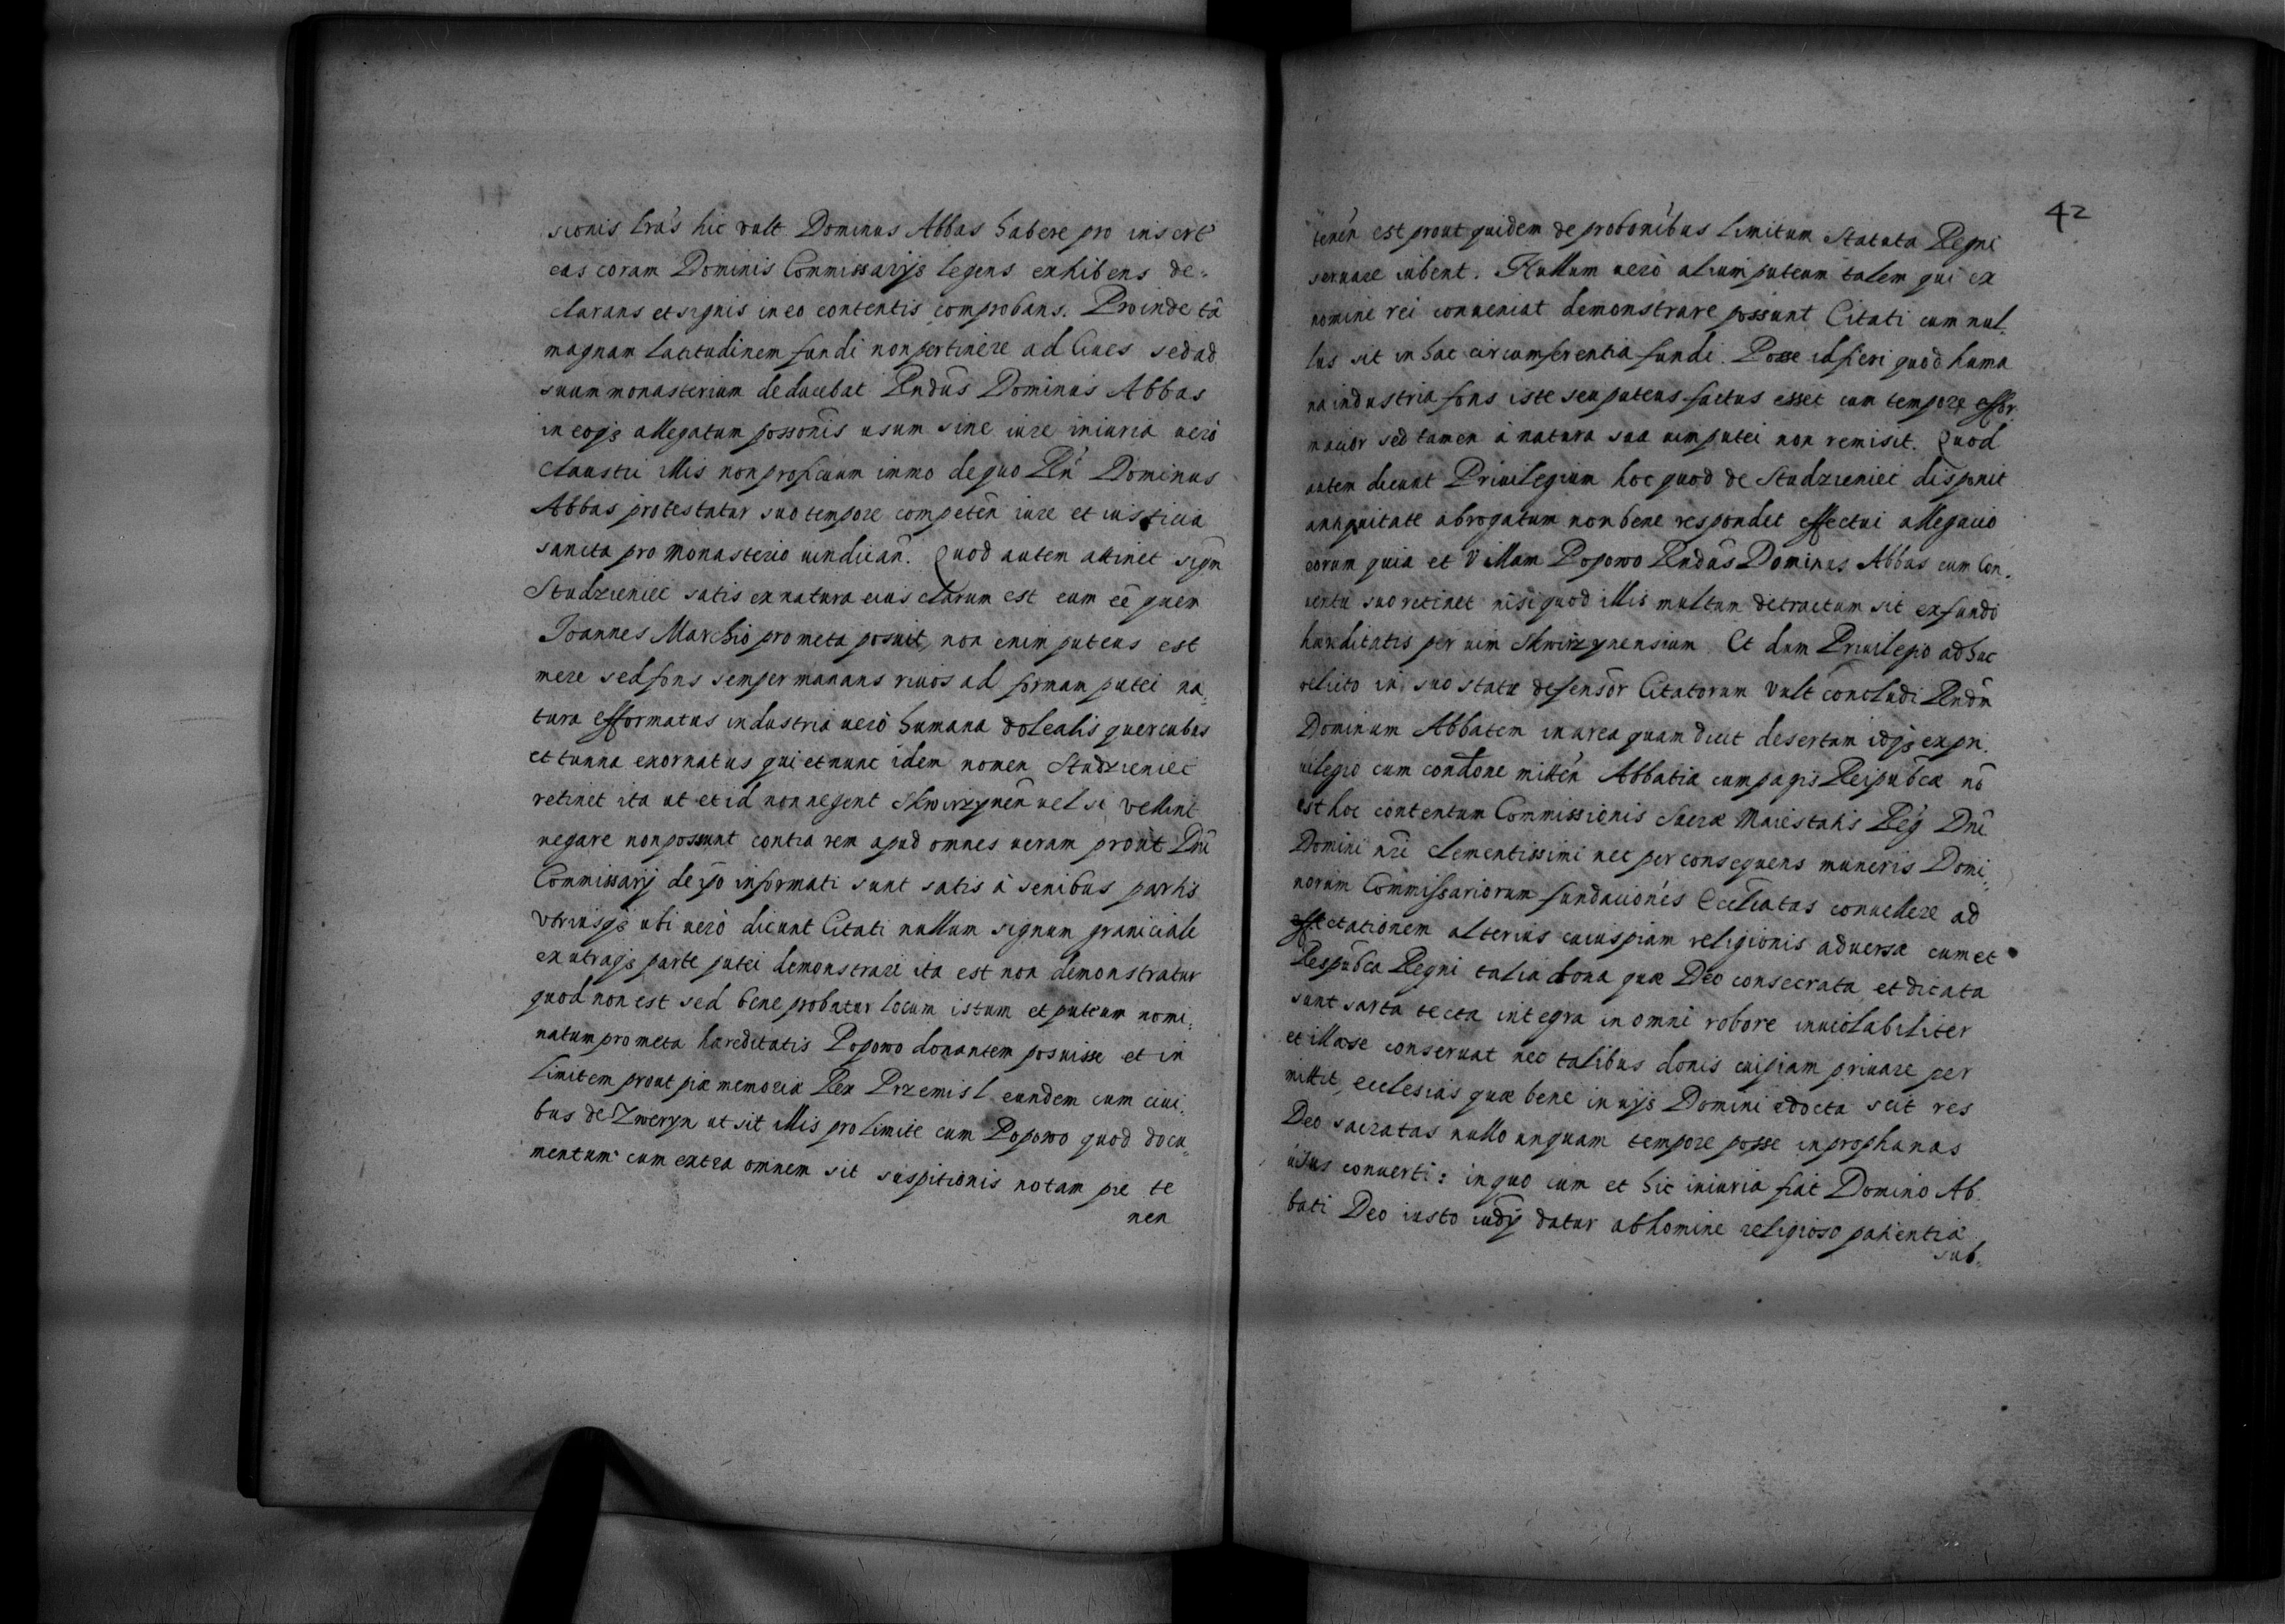 sionis lrãs hic vult Dominus Abbas habere pro insert
eas coram Dominis Commissarijs legens exhibens de=
clarans et signis in eo contentis comprobans. Proinde tã
magnam latitudinem fundi non pertinere ad Ciues sed ad
suum monasterium deducebat Rndũs Dominus Abbas
in eoqȝ allegatum possoñis usum sine iure iniuria uerò
Claustri illis non proficuum immo de quo Rñ Dominus
Abbas protestatur suo tempore competeñ iure et iusticia
sancita pro monasterio uindicañ. Quod autem attinet signũ
Studzieniec satis ex natura eius clarum est eum eē quem
Joannes Marchio pro meta posuit, non enim puteus est
mere sed fons semper manans riuos ad formam putei na=
tura efformatus industria uerò humana dolealis quercubus
et tunna exornatus qui et nunc idem nomen Studzieniec
retinet ita ut et id non negent Skwirzyneñ uel si vellint
negare non possunt contra rem apud omnes ueram proùt Dñi
Commissarij de ipo informati sunt satis à senibus partis
vtriusqȝ ubi uerò dicunt Citati nullum signum graniciale
ex utraqȝ parte putei demonstrari ita est non demonstratur
quod non est sed bene probatur locum istum et puteum nomi=
natum pro meta hæreditatis Popowo donantem posuisse et in
limitem prout piæ memoriæ Rex Przemisl eundem cum ciui=
bus de Zweryn ut sit illis pro limite cum Popowo quod docu=
mentum cum extra omnem sit suspitionis notam pie te
nen
42
teneñ est prout quidem de probonibus limitum Statuta Regni
seruare iubent. Nullum uerò alium puteum talem qui ex
nomine rei conueniat demonstrare possunt Citati cum nul=
lus sit in hac circumferentia fundi. Posse id fieri quod huma
na industria fons iste seu puteus factus esset cum tempore effor
macior sed tamen à natura sua uim putei non remisit. Quod
autem dicunt Priuilegium hoc quod de Studzieniec disponit
antiquitate abrogatum non bene respondet effectui allegacio
eorum quia et Villam Popowo Rndũs Dominus Abbas cum Con=
uentu suo retinet nisi quod illis multum detractum sit ex fundo
hæreditatis per uim Skwirzynensium. Et dum Priuilegio ad hac
relicto in suo statu defensor Citatorum vult concludi Rndm̃
Dominum Abbatem in area quam dicit desertam idqȝ ex pri=
uilegio cum condone mitteñ Abbatia cum pagis Reipubcæ nõ
est hoc contentum Commissionis Sacræ Maiestatis Reg Dñi
Domini nr̃i clementissimi nec per consequens muneris Domi=
norum Commissariorum fundaciones Eccl̃iatas conuellere ad
affectationem alterius cuiuspiam religionis aduersæ cum et
Respubca Regni talia bona quæ Deo consecrata et dicata
sunt sarta tecta integra in omni robore inuiolabiliter
et illæse conseruat nec talibus donis cuipiam priuare per
mittit, ecclesias quæ bene in uijs Domini edocta scit res
Deo sacratas nullo unquam tempore posse in prophanas
usus conuerti: in quo cum et hic iniuria fiat Domino Ab=
bati Deo iusto iudij datur ab homine religioso patientia
sub=